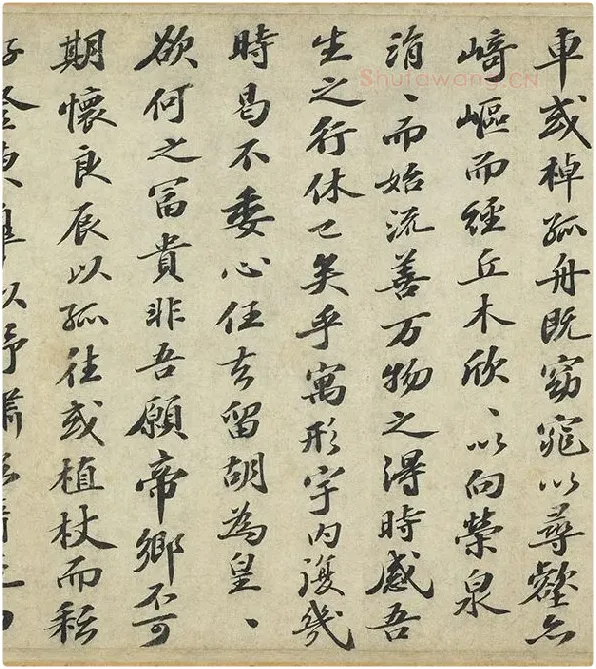 車或棹孤舟既窈窕以尋壑亦
崎嶇而經丘木欣〻以向榮泉
涓〻而始流善万物之得時感吾
生之行休已矣乎寓形宇内復幾
時曷不委心任去留胡為皇〻
欲何之冨貴非吾願帝鄉不可
期懷良辰以孤往或植杖而耘
登東皋以舒嘯
Shufawang.CN